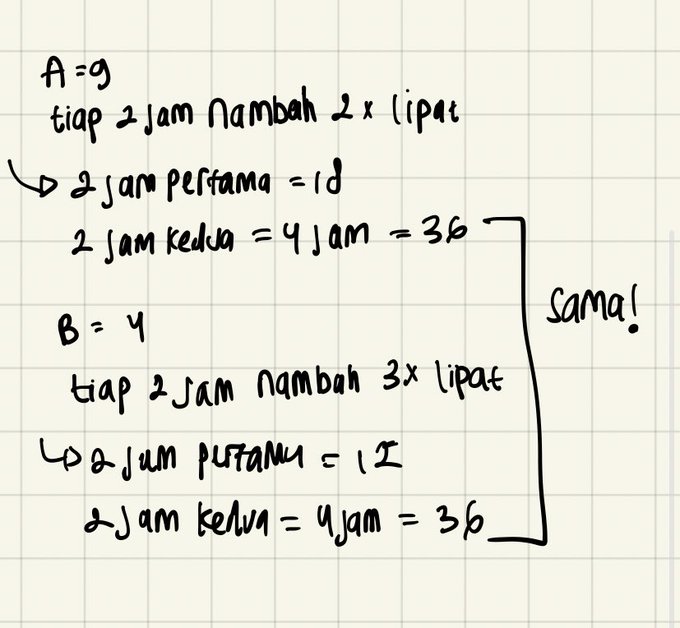 A = 9
tiap 2 jam nambah 2x lipat
↳ 2 jam pertama = 18
2 jam kedua = 4 jam = 36
sama!
B = 4
tiap 2 jam nambah 3x lipat
↳ 2 jam pertama = 12
2 jam kedua = 4 jam = 36